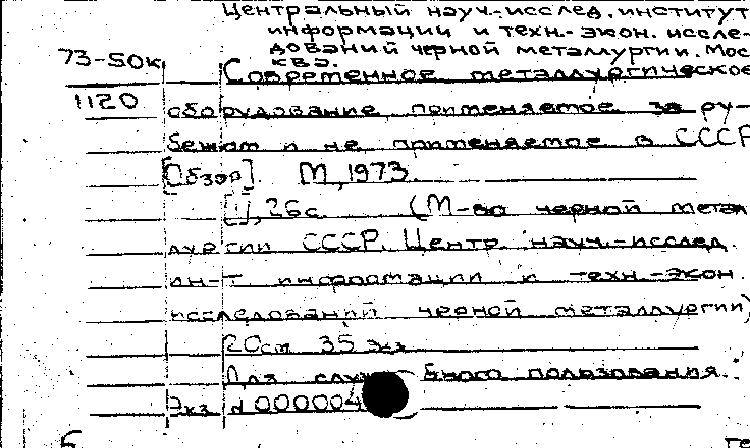 Центральный науч.-исслед. институт
информации и техн.-экон. иссле-
дований черной металлургии. Мос
ква.
73-50к
Современное металлургическое
1120
оборудование, применяемое за ру-
бежом и не применяемое в СССР
[Обзор]. М., 1973.
[1], 26 с. (М-во черной метал
лургии СССР. Центр. науч.-исслед.
ин-т информации и техн.-экон.
исследований черной металлургии)
20см 35 экз
Для служебного пользования.
Экз. № 000004